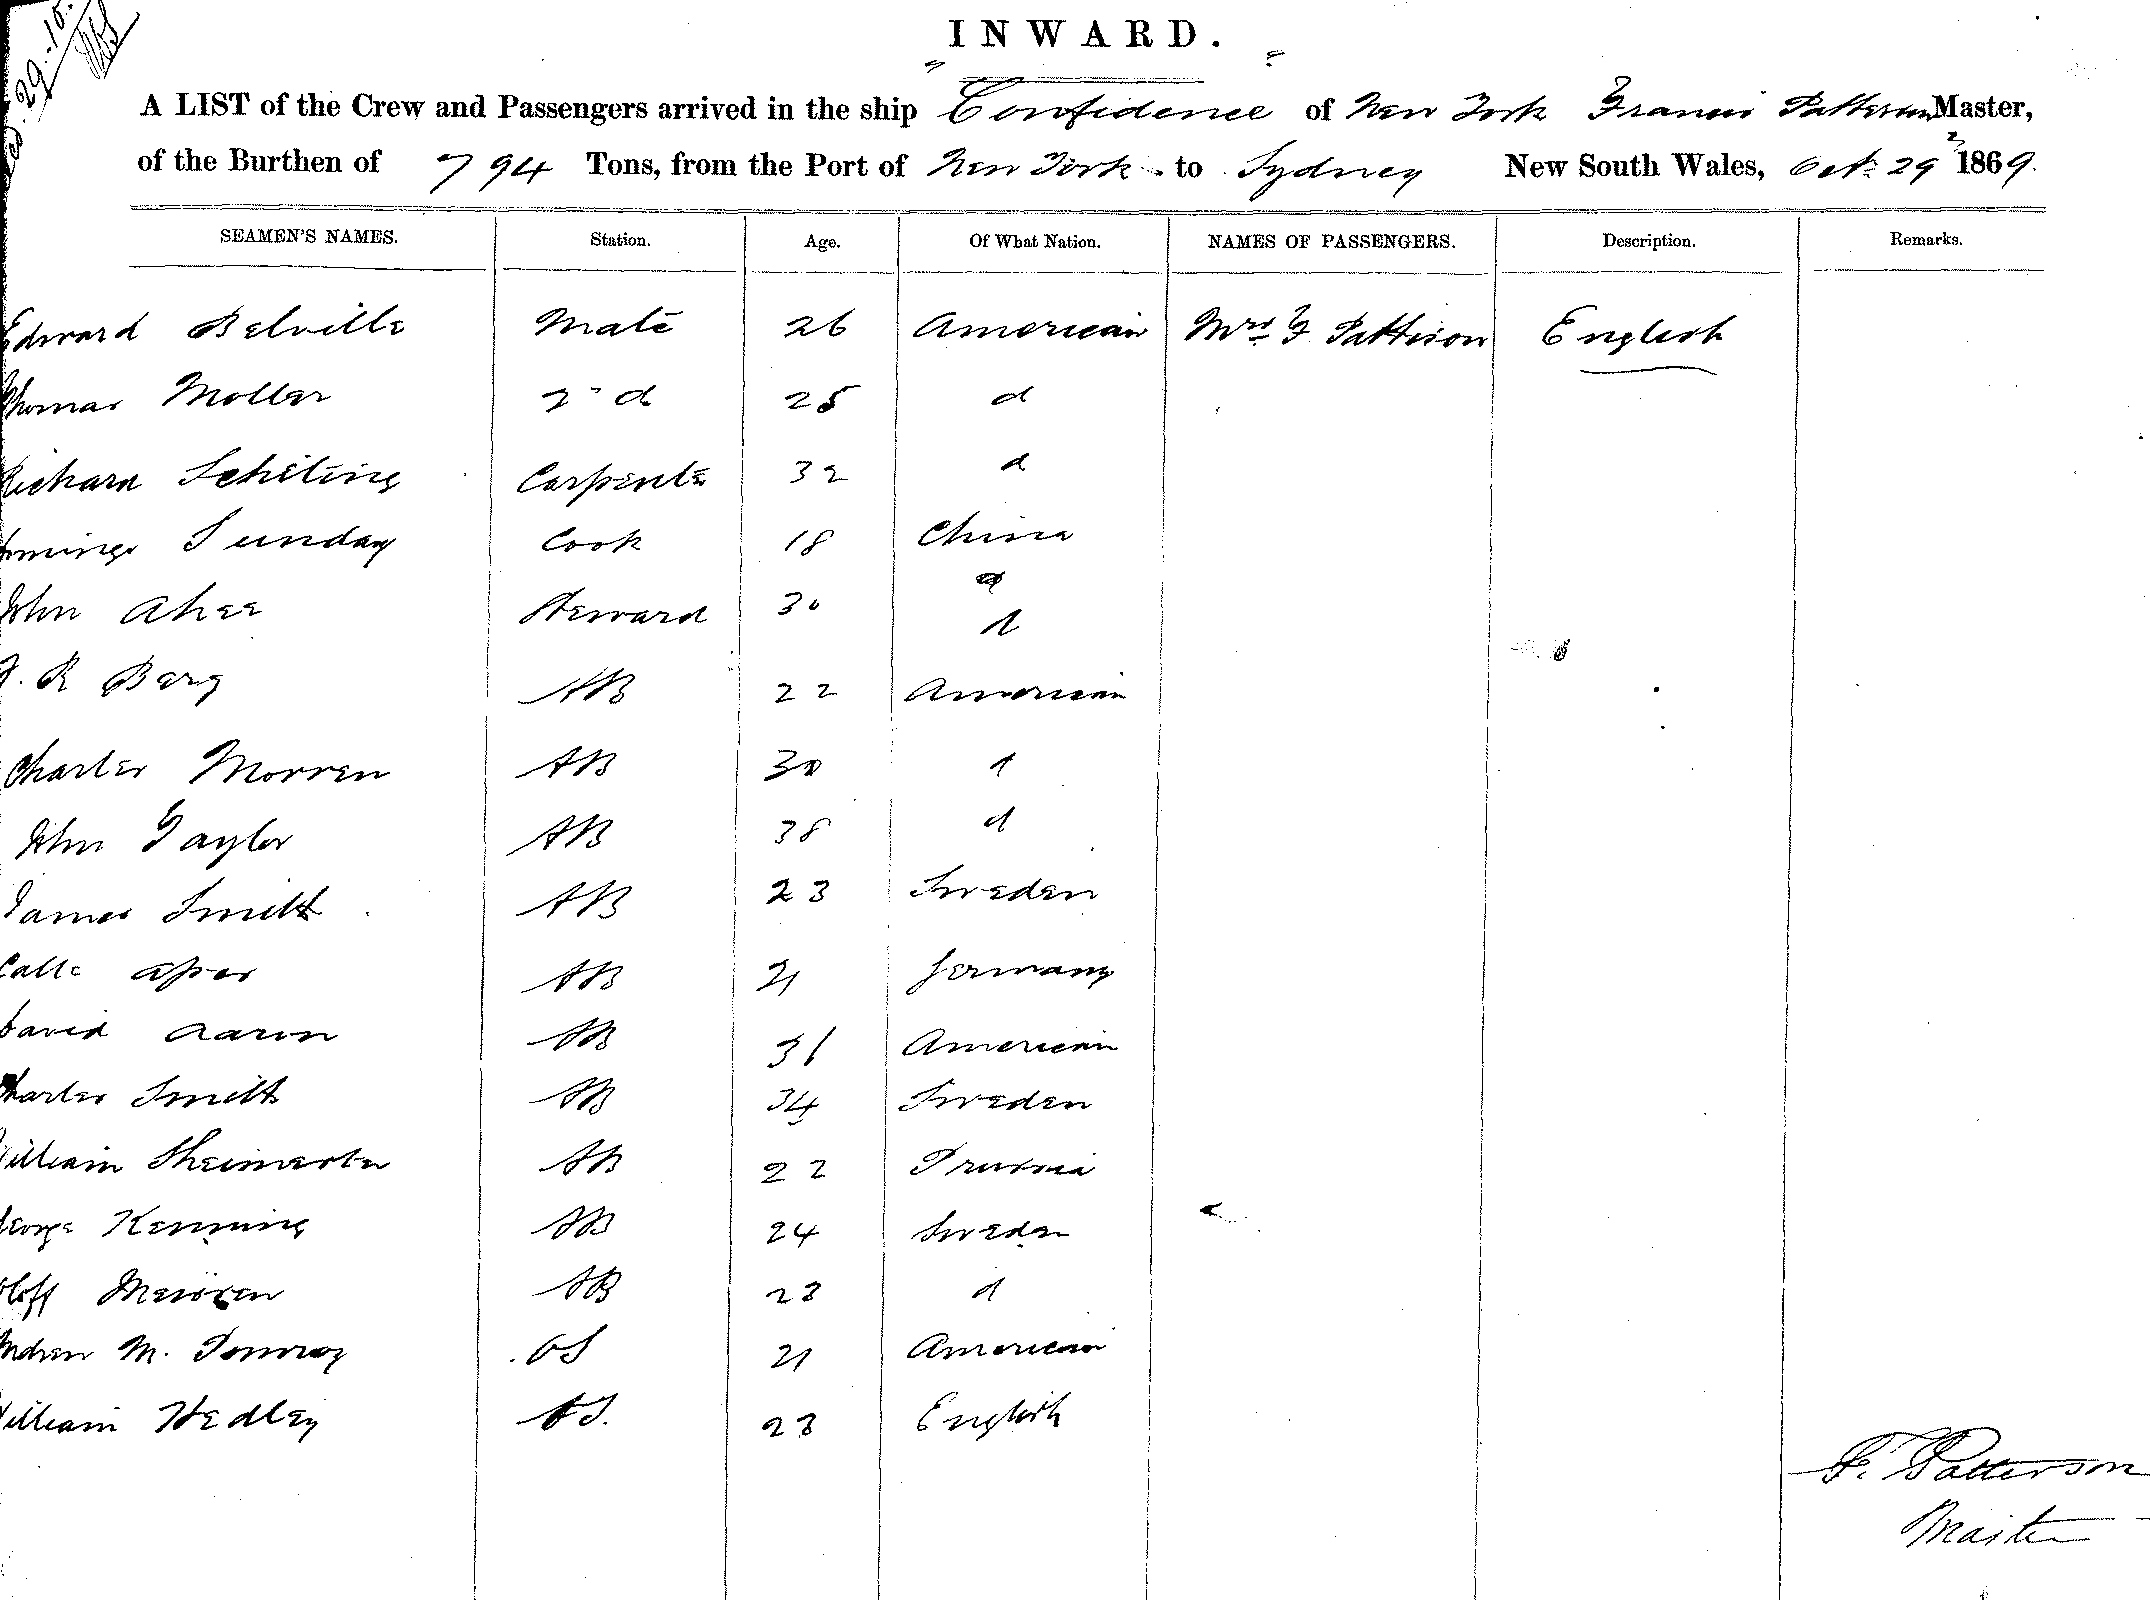 29.10.
INWARD.
A LIST of the Crew and Passengers arrived in the ship Confidence of New York Francis Patterson Master,
of the Burthen of 794 Tons, from the Port of New York to Sydney New South Wales, Oct 29 1869.
SEAMEN'S NAMES. Station. Age. Of What Nation. NAMES OF PASSENGERS. Description. Remarks.
Edward Belville Mate 26 American Mrs F Pattison English
Thomas Moller 2d 25 d
Richard Schiling Carpenter 32 d
Sunday Cook 18 China
d
John Ahee Steward 30 d
R Berg AB 22 American
Charles Morren AB 30 d
John Taylor AB 38 d
James Smith AB 23 Sweden
Calle Apes AB 21 Germany
David Aaron AB 31 American
Charles Smith AB 34 Sweden
William AB 22 Prussia
George Kenning AB 24 Sweden
Oloff AB 23 d
Andrew M. OS 21 American
William Hedley OS. 23 English
F. Patterson
Master